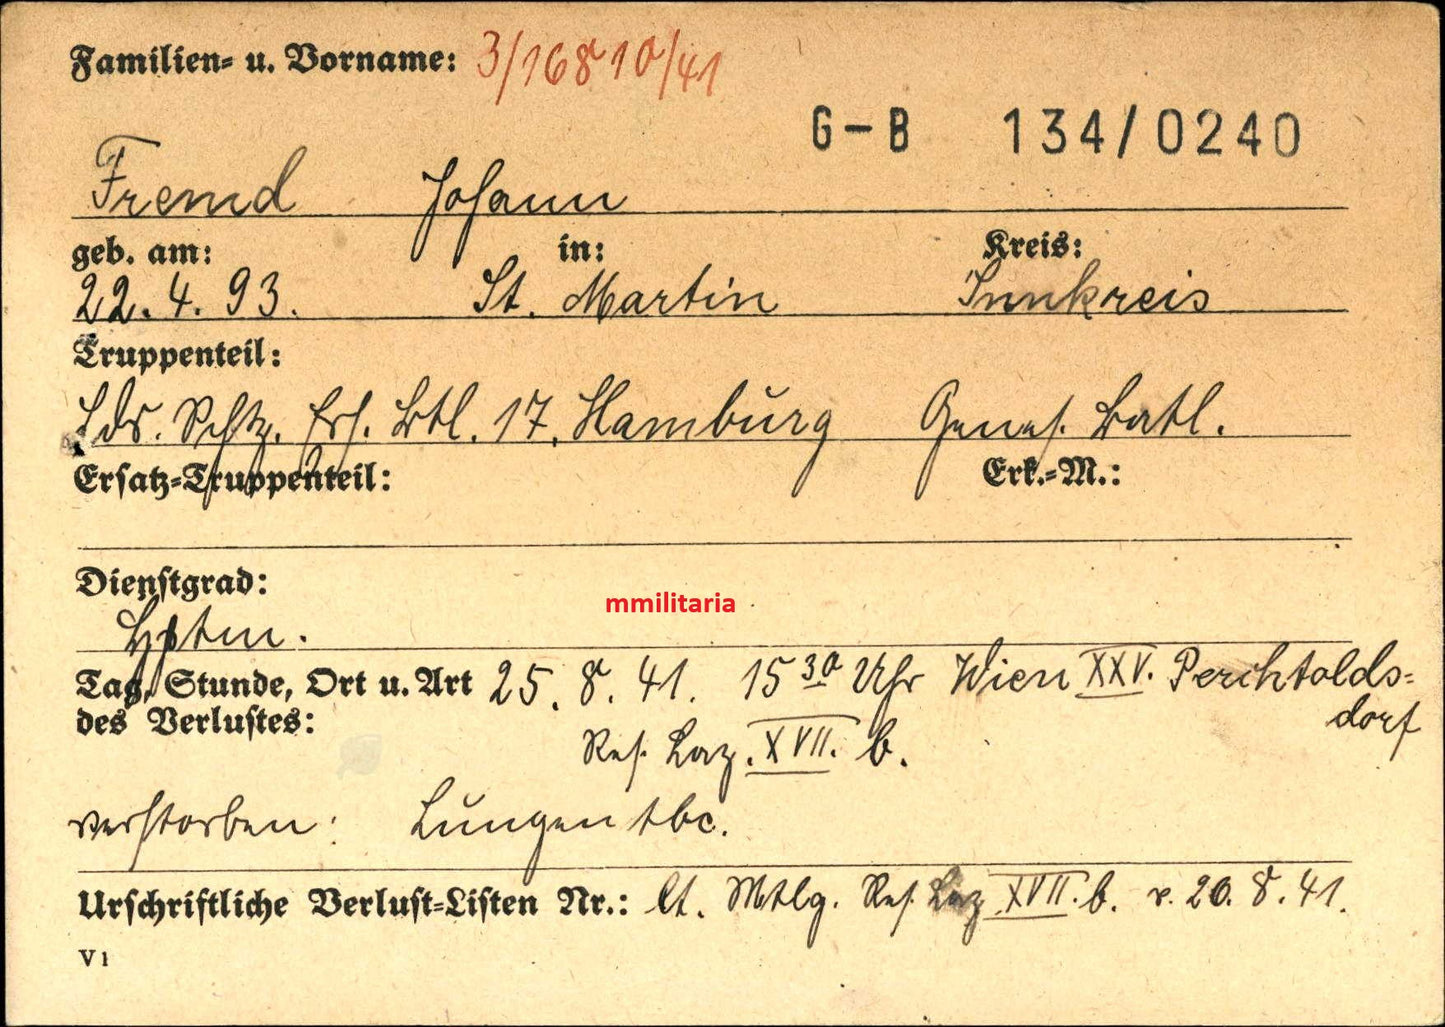 Familien- u. Vorname: 3/16810/41
G-B 134/0240
Fremd Johann
geb. am: in: Kreis:
22.4.93. St. Martin Innkreis
Truppenteil:
Lds. Schtz. Ers. Btl. 17, Hamburg Genes. Batl.
Ersatz-Truppenteil: Erk.-M.:
Dienstgrad:
Hptm.
mmilitaria
Tag, Stunde, Ort u. Art 25.8.41. 15 30 Uhr Wien XXV. Perchtolds-
dorf
des Verlustes:
Res. Laz. XVII. b.
verstorben: Lungen tbc.
Urschriftliche Verlust-Listen Nr.: lt. Mtlg. Res. Laz XVII. b. v. 26.8.41.
V1